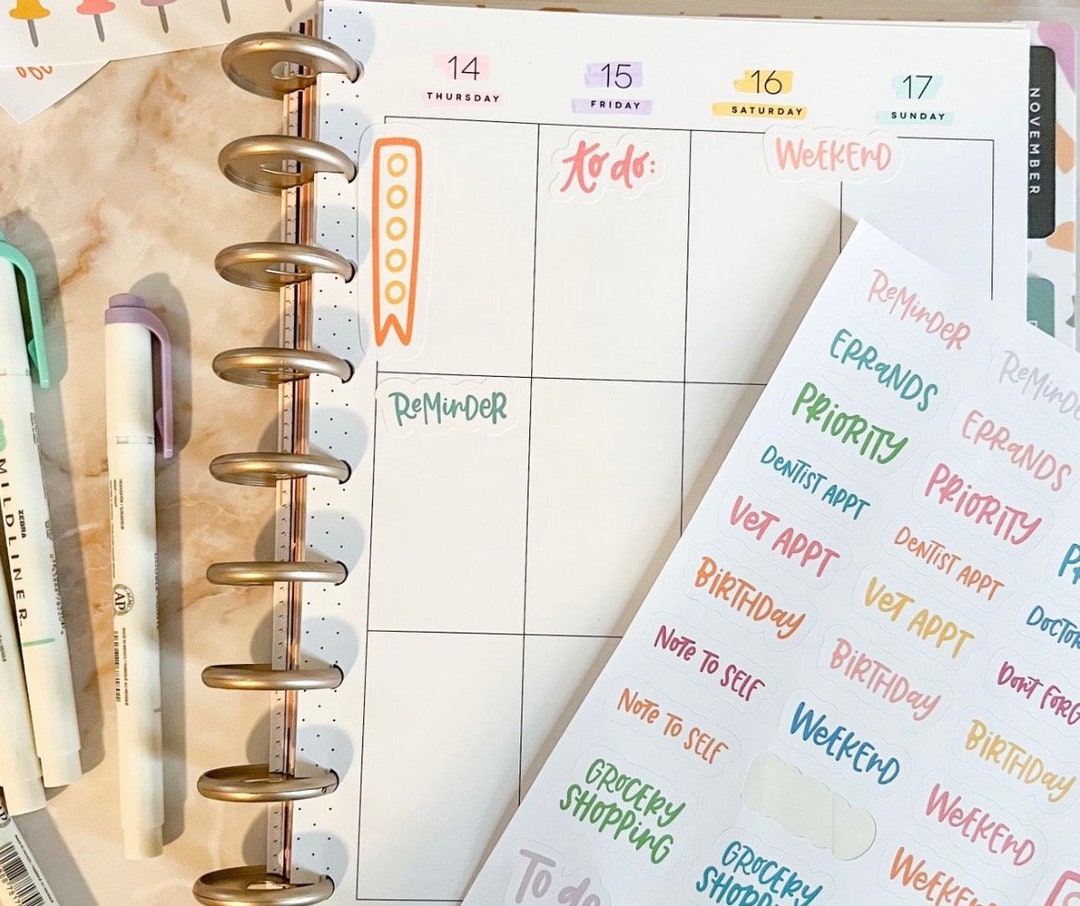 14
THURSDAY
15
FRIDAY
16
SATURDAY
17
SUNDAY
NOVEMBER
to do:
WEEKEND
REMINDER
REMINDER
REMINDE
ERRANDS
ERRANDS
PRIORITY
PRIORITY
DENTIST APPT
DENTIST APPT
VET APPT
VET APPT
DOCTOR
BIRTHDAY
BIRTHDAY
BIRTHDAY
NOTE TO SELF
NOTE TO SELF
DON'T FORG
WEEKEND
WEEKEND
WEEKEND
GROCERY
SHOPPING
GROCERY
SHOPPING
To do
ZEBRA
MILDLINER.
AP